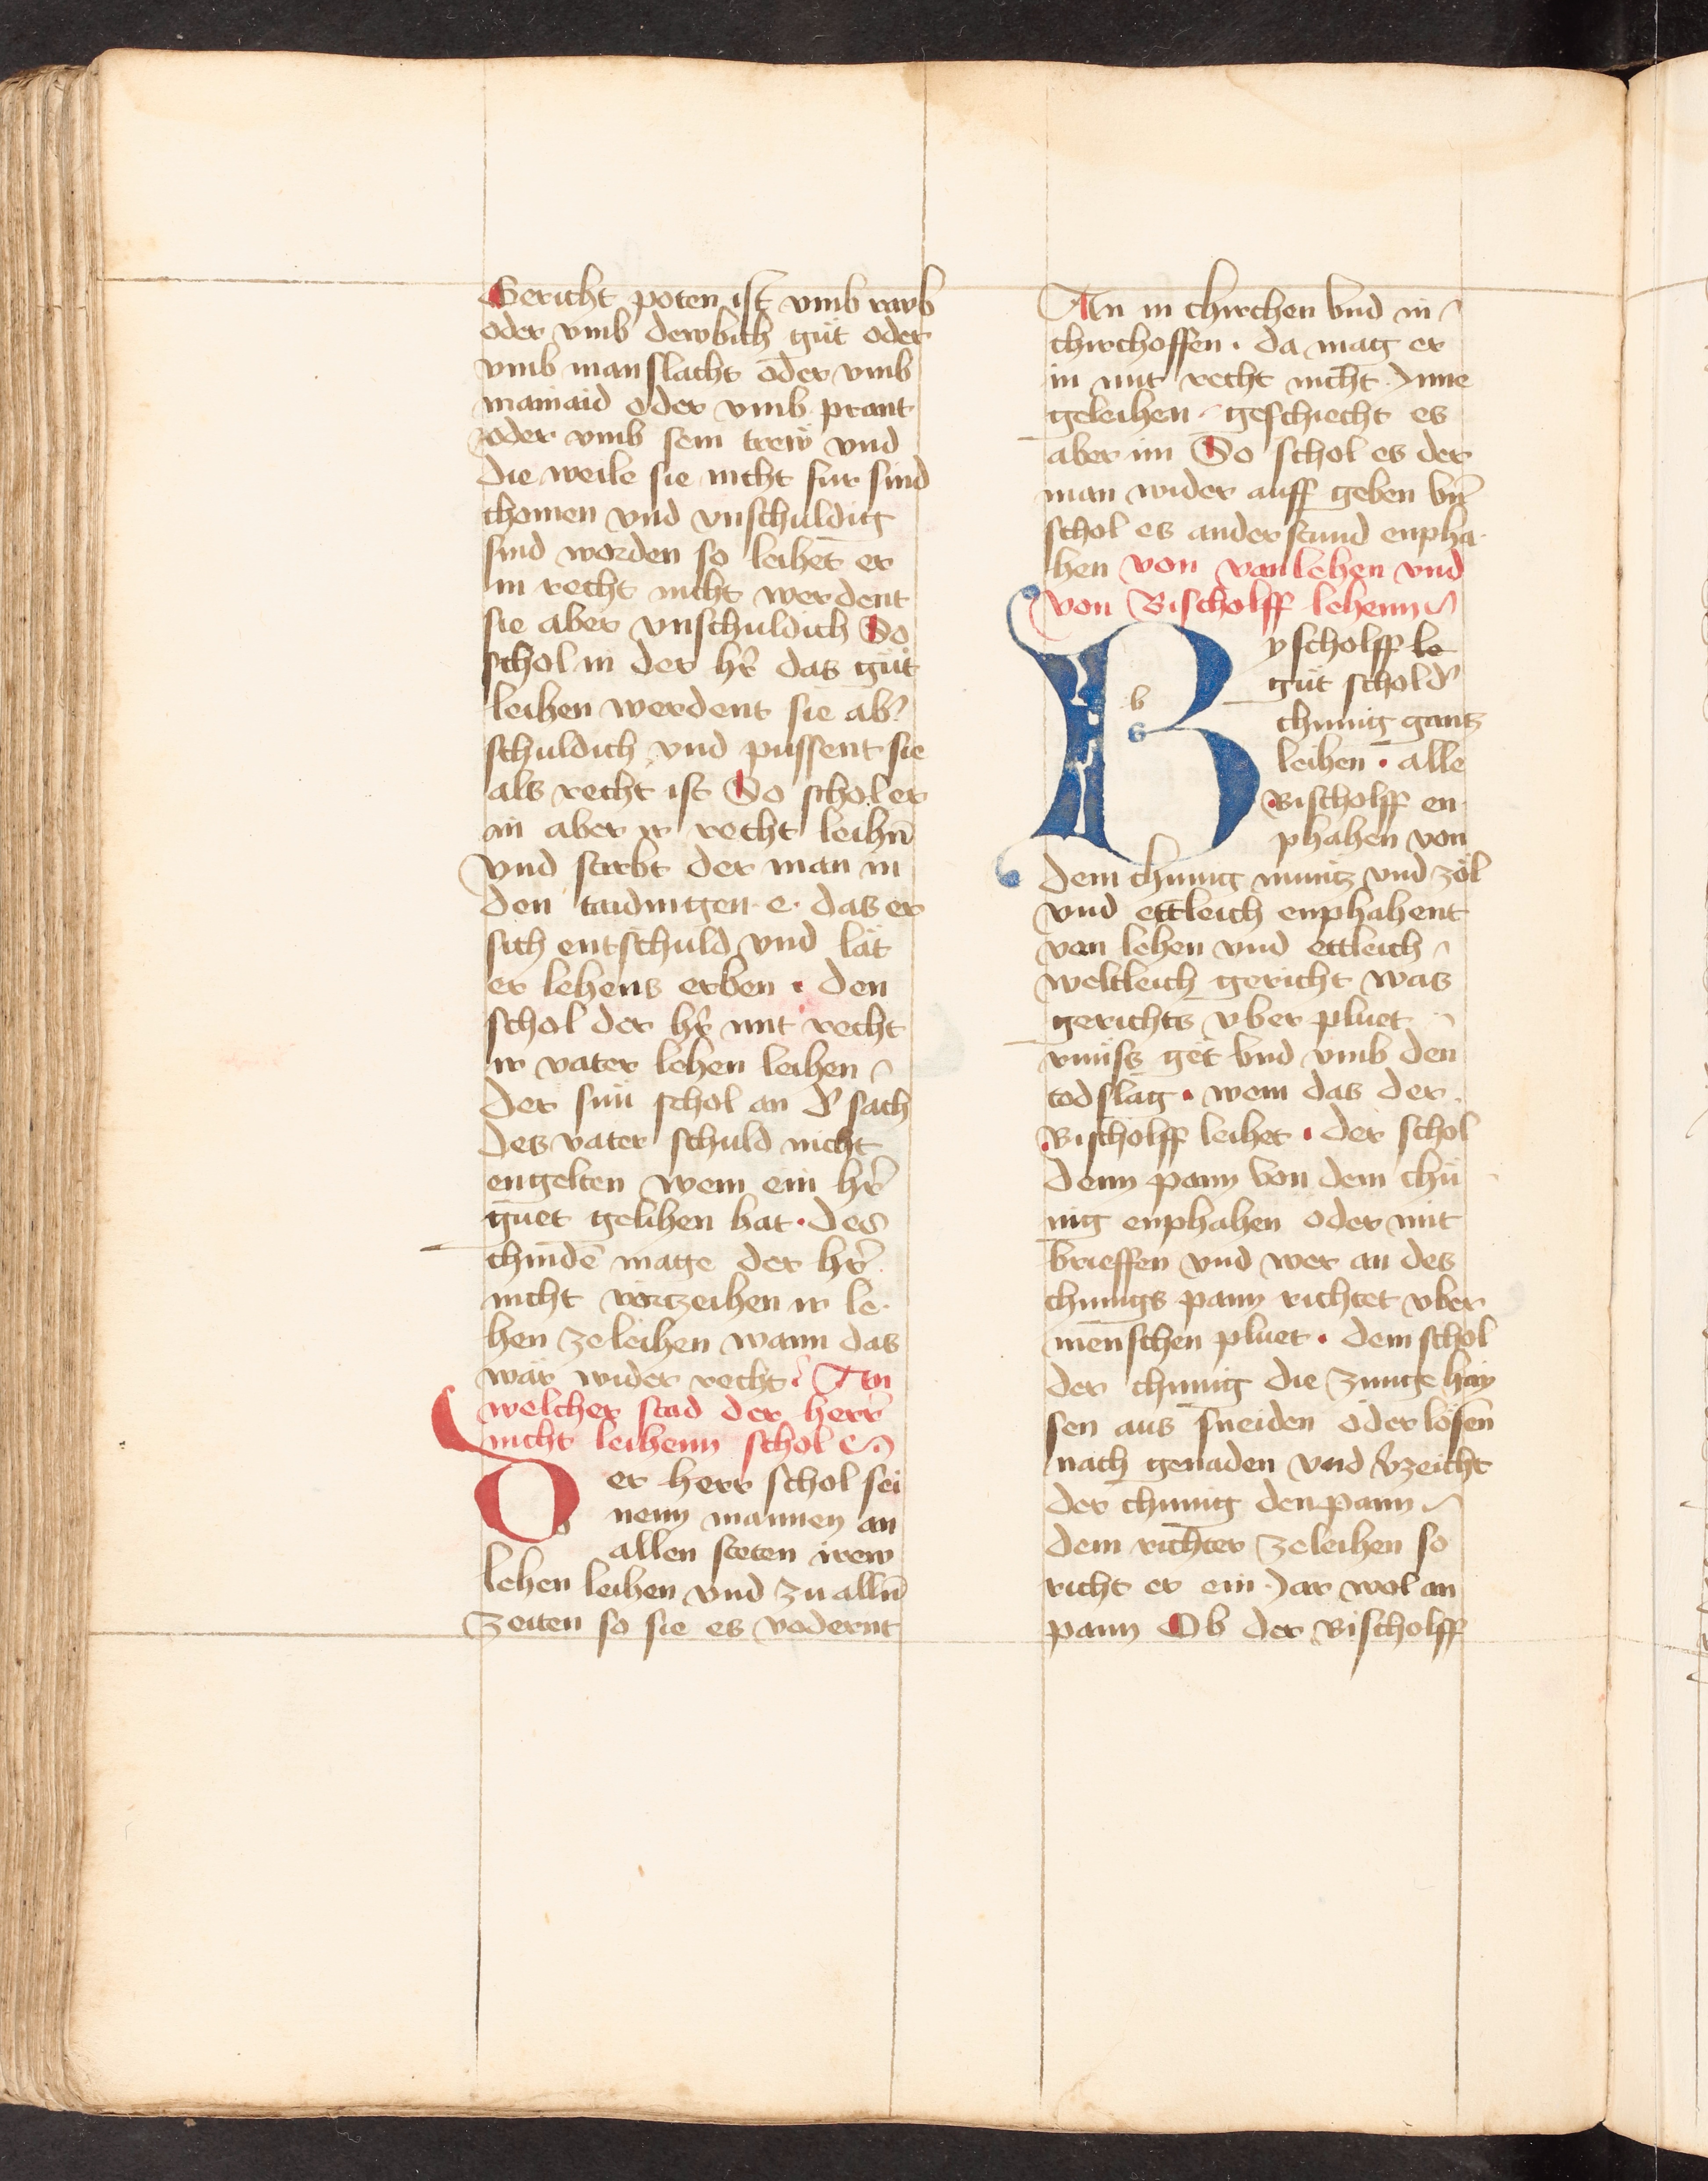 Gericht poten ist vmb raub
oder vmb dewbich güt oder
vmb manslacht oder vmb
mainaid oder vmb prant
oder vmb sein trew vnd
die weile sie nicht fur sind
chomen vnd vnschuldig
sind worden so leihet er
in recht nicht werdent
sie aber vnschuldich So
schol in der hr̄ das güt
leihen werdent sie ab̾
schuldich vnd pussent sie
als recht ist So schol er
in aber ir recht leihn̄
vnd stirbt der man in
den taidingen · e · das er
sich entschuld vnd lät
er lehens erben · den
schol der hr̄ mit recht
ir vater lehen leihen
Der sün schol an d̾ sach
des vater schuld nicht
engelten wem ein hr̄
guet gelihen hat · des
chindē mage der hr̄
nicht vorzeihen ir le·
hen zeleihen wann das
wär wider recht An
welcher stad der herr
nicht leihenn schol
Der herr schol sei
nenn mannen an
allen steten irew
lehen leihen vnd zu alln̄
Zeiten so sie es vodernt
An in chirchen vnd in
chirchoffen · da mag er
in mit recht nicht Inne
geleihen geschiecht es
aber im So schol es der
man wider auff geben vn̄
schol es anderstund enpha·
hen von vanlehen vnd
von Bischolff lehenn
Byscholff le
güt schol d̾
chunig gantz
leihen · alle
Bischolff en
phahen von
dem chunig müntz vnd zöl
vnd ettleich enphahent
van lehen vnd ettleich
weltleich gericht was
gerichts vber pluet
rünss get vnd vmb den
todslag · wem das der
Bischolff leihet · der schol
denn pann von dem chü
nig enphahen oder mit
brieffen vnd wer an des
chunigs pann richtet vber
menschen pluet · dem schol
der chunig die zunge hay
sen aus sneiden oder lösen
nach genaden vnd v̾zeicht
der chunig den pann
dem richter zeleihen so
richt er ein Jar wol an
pann Ob der Bischolff